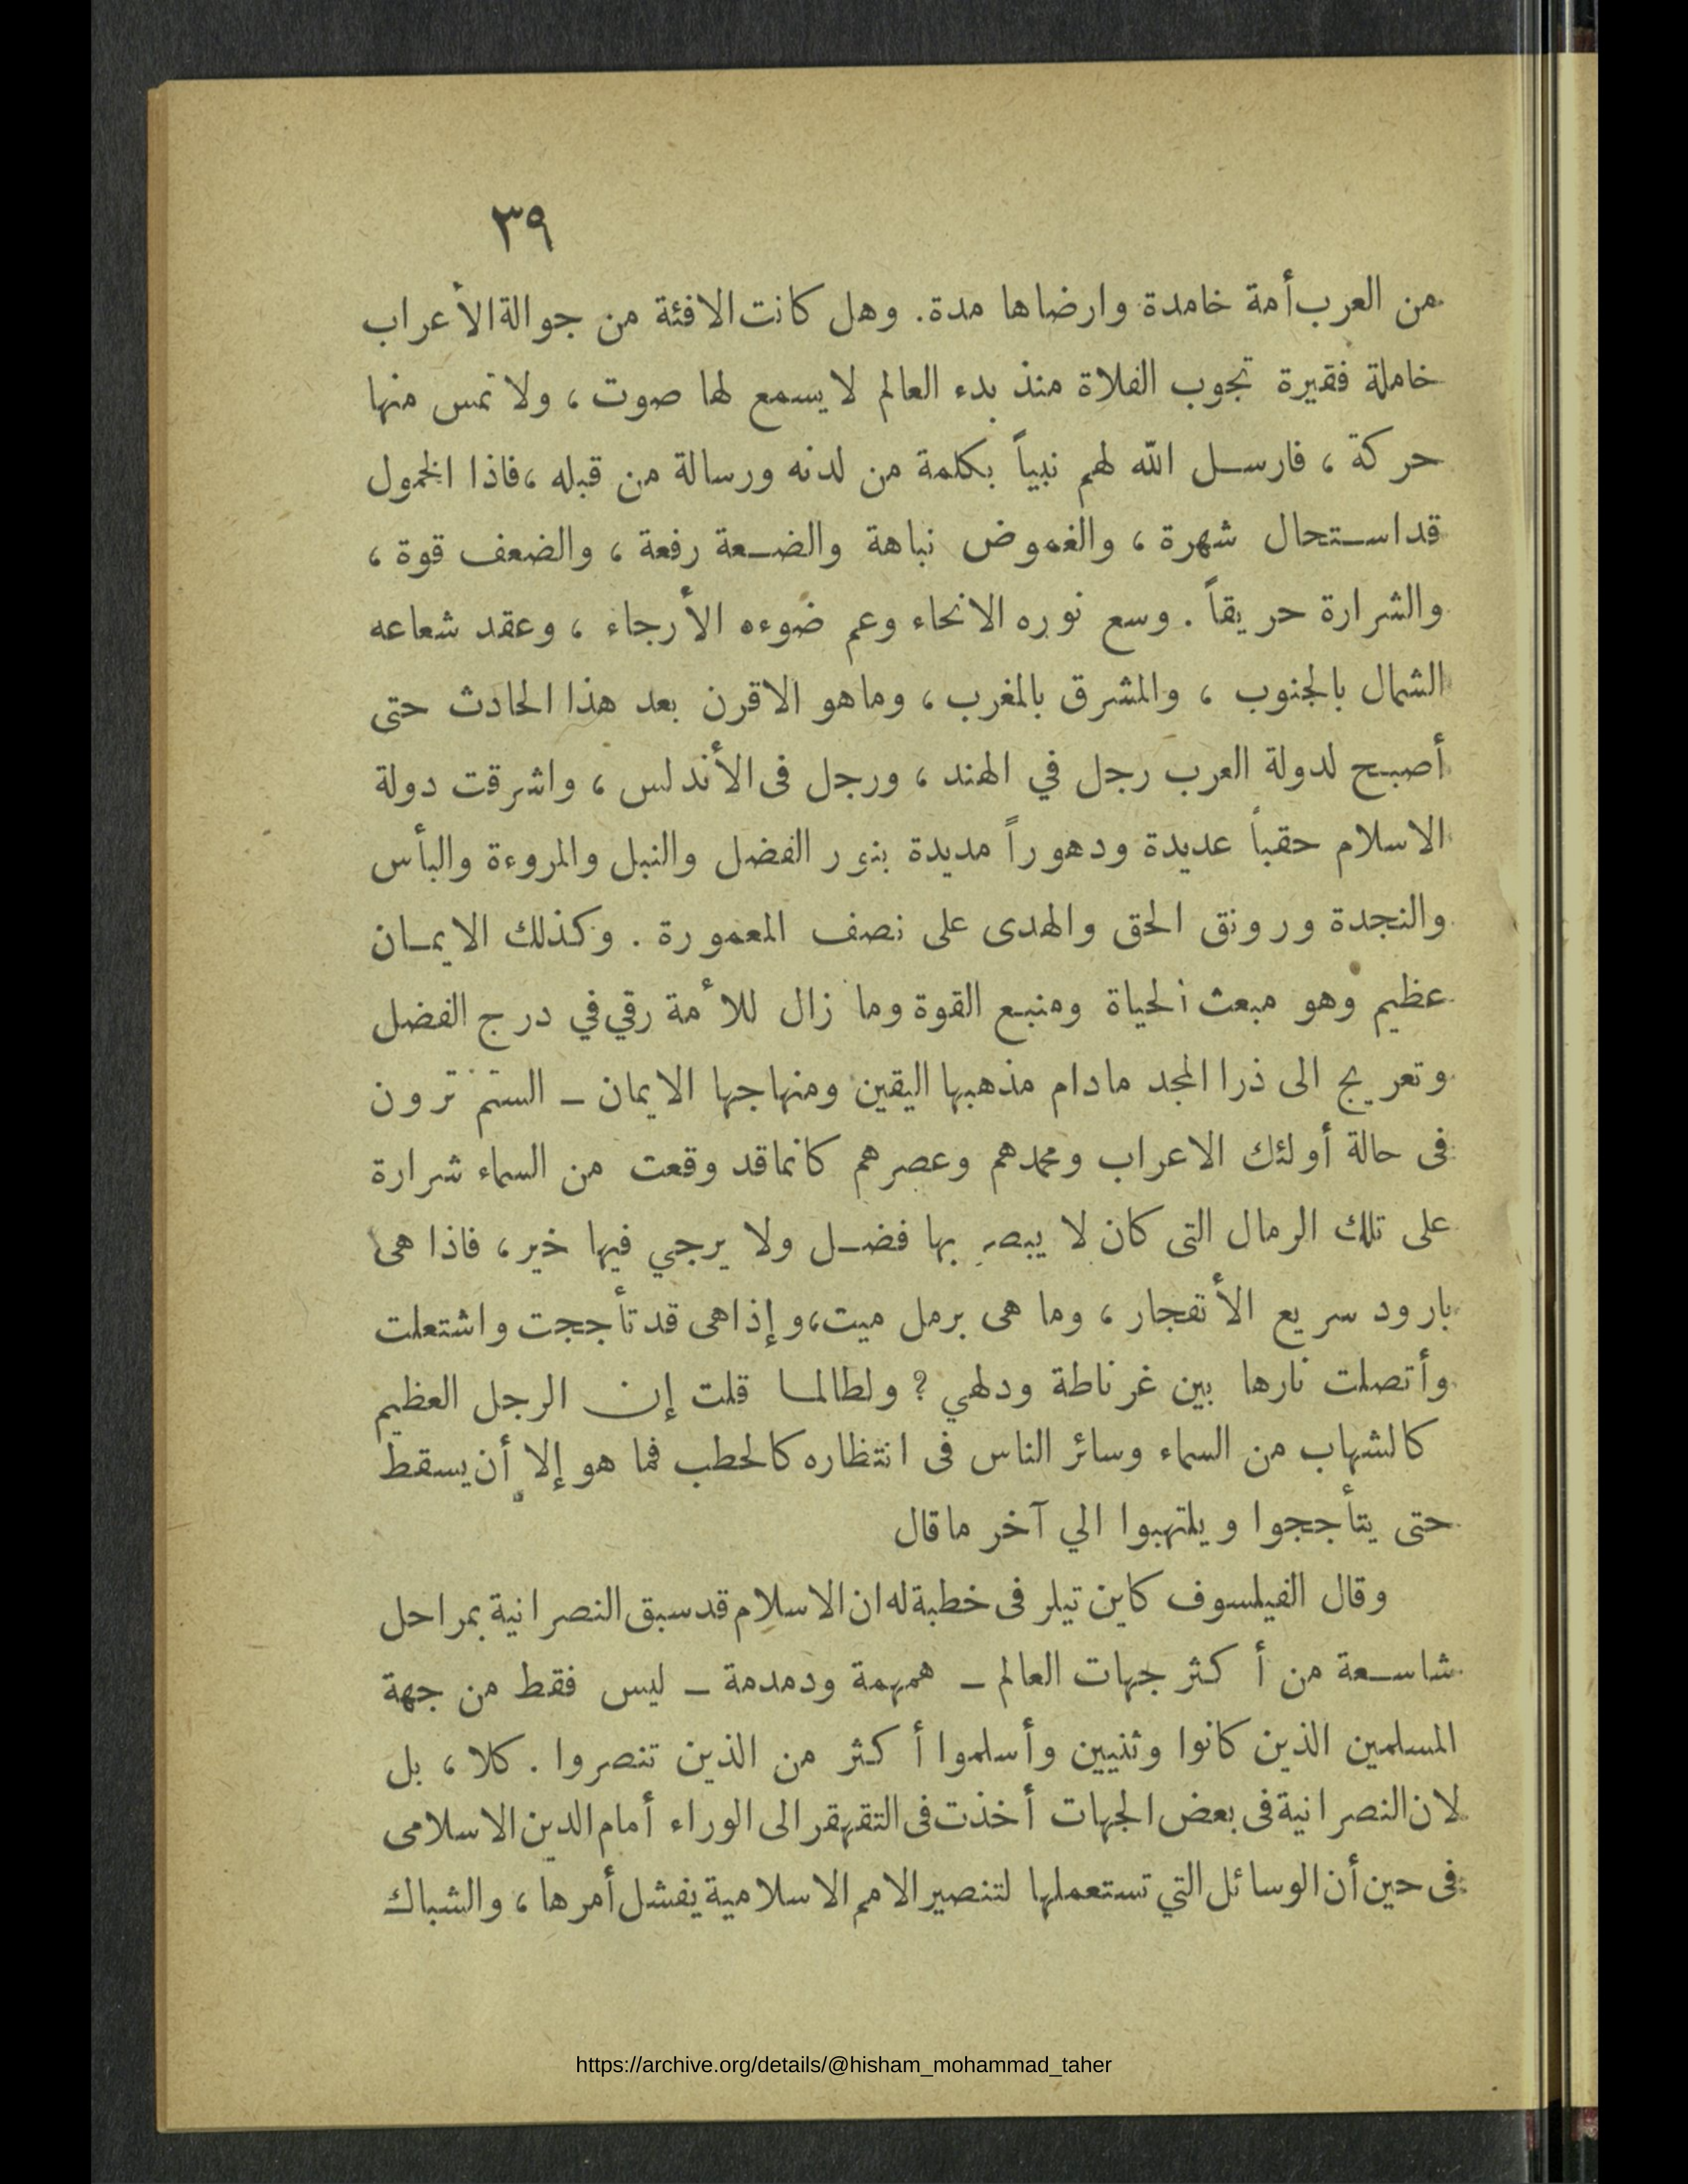 ٣٩
من العرب أمة خامدة وارضاها مدة. وهل كانت الافئة من جوالة الأعراب
خاملة فقيرة تجوب الفلاة منذ بدء العالم لا يسمع لها صوت ، ولا تمس منها
حركة ، فارسل الله لهم نبياً بكلمة من لدنه ورسالة من قبله ، فاذا الخمول
قد استحال شهرة ، والغموض نباهة والضعة رفعة ، والضعف قوة ،
والشرارة حريقاً . وسع نوره الانحاء وعم ضوءه الأرجاء ، وعقد شعاعه
الشمال بالجنوب ، والمشرق بالمغرب ، وماهو الاقرن بعد هذا الحادث حتى
أصبح لدولة العرب رجل في الهند ، ورجل فى الأندلس ، واشرقت دولة
الاسلام حقباً عديدة ودهوراً مديدة بنور الفضل والنبل والمروءة والبأس
والنجدة ورونق الحق والهدى على نصف المعمورة . وكذلك الايمان
عظيم وهو مبعث الحياة ومنبع القوة وما زال للأمة رقي في درج الفضل
وتعريج الى ذرا المجد مادام مذهبها اليقين ومنهاجها الايمان – الستم ترون
فى حالة أولئك الاعراب ومحمدهم وعصرهم كانما قد وقعت من السماء شرارة
على تلك الرمال التى كان لا يبصر بها فضل ولا يرجي فيها خير ، فاذا هى
بارود سريع الأنفجار ، وما هى برمل ميت ، وإذا هى قد تأججت واشتعلت
وأتصلت نارها بين غرناطة ودلهي ؟ ولطالما قلت إن الرجل العظيم
كالشهاب من السماء وسائر الناس فى انتظاره كالحطب فما هو إلا أن يسقط
حتى يتأججوا ويلتهبوا الي آخر ما قال
وقال الفيلسوف كاين تيلر فى خطبة له ان الاسلام قد سبق النصرانية بمراحل
شاسعة من أكثر جهات العالم – همهمة ودمدمة – ليس فقط من جهة
المسلمين الذين كانوا وثنيين وأسلموا أكثر من الذين تنصروا . كلا ، بل
لان النصرانية فى بعض الجهات أخذت فى التقهقر الى الوراء أمام الدين الاسلامى
فى حين أن الوسائل التي تستعملها لتنصير الامم الاسلامية يفشل أمرها ، والشباك
https://archive.org/details/@hisham_mohammad_taher